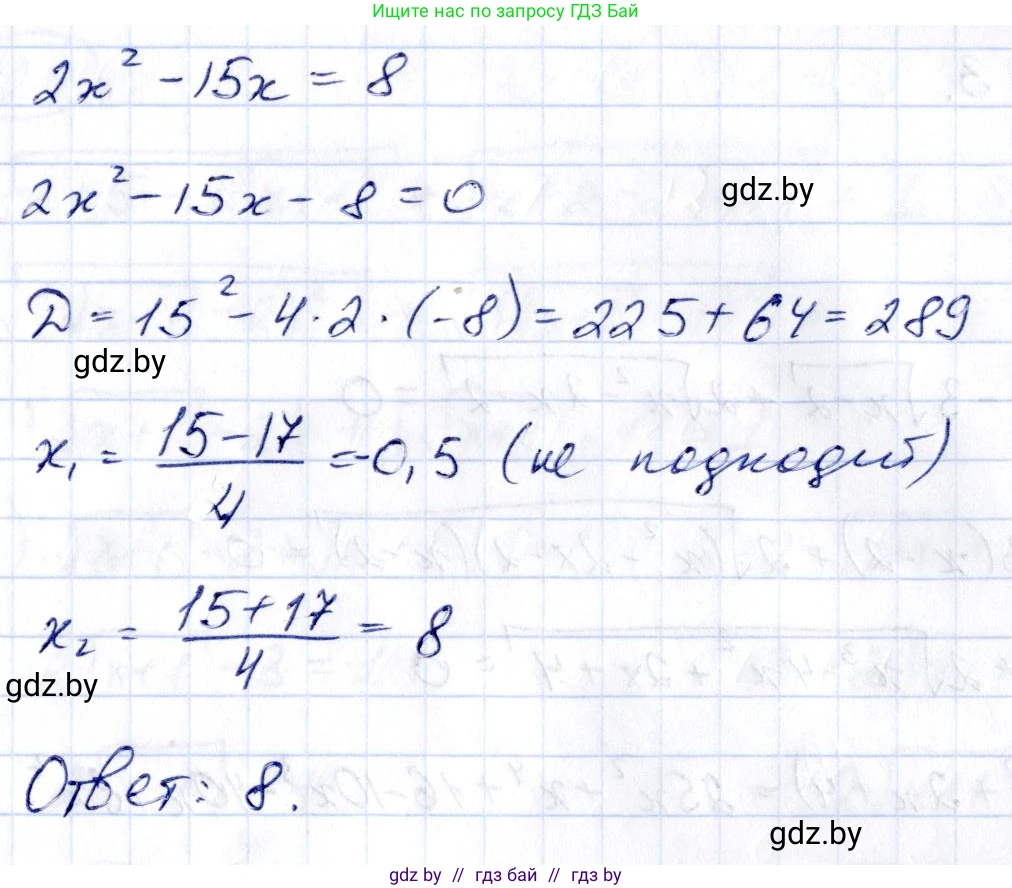 Ищите нас по запросу ГДЗ Бай
2x² - 15x = 8
2x² - 15x - 8 = 0
gdz.by
D = 15² - 4 · 2 · (-8) = 225 + 64 = 289
gdz.by
x₁ = (15 - 17)/4 = -0,5 (не подходит)
x₂ = (15 + 17)/4 = 8
gdz.by
Ответ: 8.
gdz.by
gdz.by // гдз бай // gdz.by